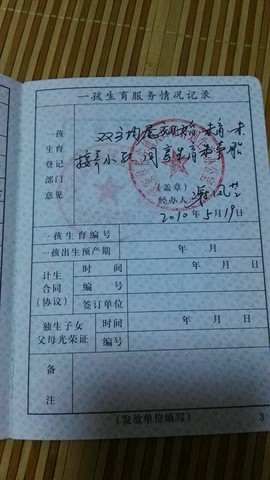 一孩生育服务情况记录
孩
生育
登记
部门
意见
双方均属初婚.未育.未
同意生育壹胎
(盖章)
经办人
2010年5月19日
一孩生育编号
一孩出生预产期 年 月
计生
合同
(协议)
时间 年 月 日
编号
签订单位
独生子女
父母光荣证
时间 年 月 日
编号
备
注
(发放单位填写)
3